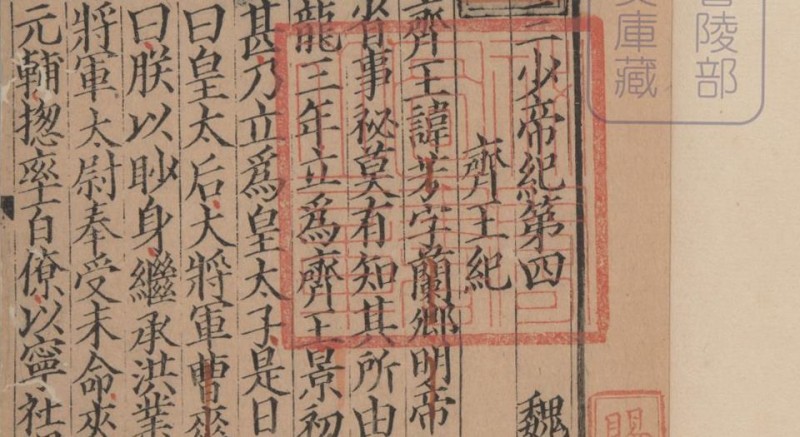 三少帝紀第四 魏
齊王紀
齊王諱芳字蘭卿明帝
省事秘莫有知其所由
龍三年立為齊王景初
甚乃立為皇太子是日
曰皇太后大將軍曹爽
曰朕以眇身繼承洪業
將軍太尉奉受末命夾
元輔揔率百僚以寧社
書陵部
庫藏
賜